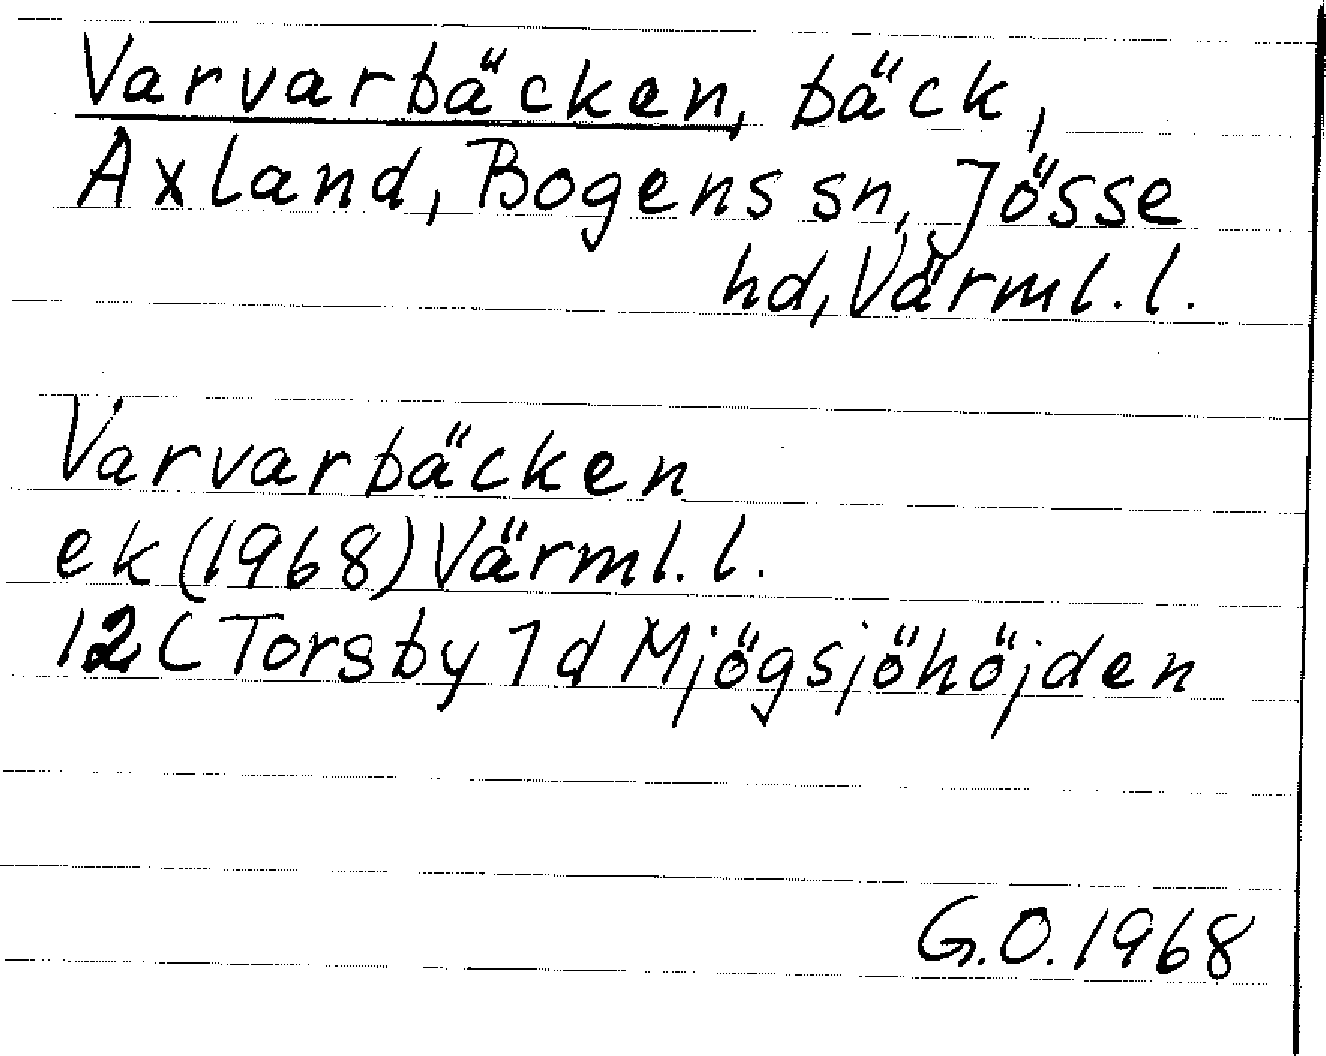 Varvarbäcken, bäck,
Axland, Bogens sn, Jösse
hd, Värml. l.
Varvarbäcken
ek (1968) Värml. l.
12 C Torsby 7 d Mjögsjöhöjden
G.O. 1968